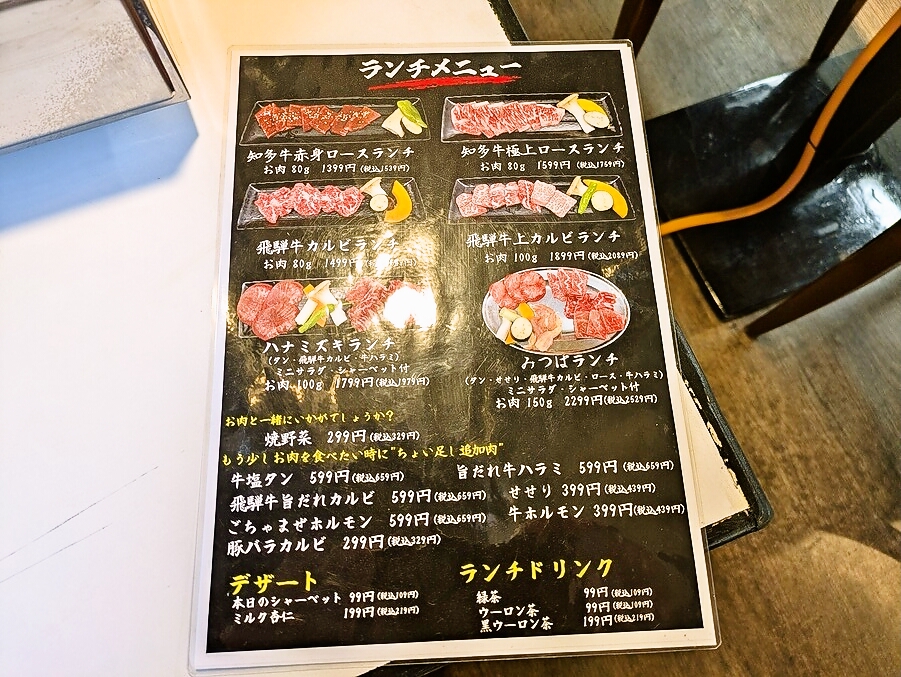 ランチメニュー
知多牛赤身ロースランチ
お肉 80g 1399円(税込1539円)
知多牛極上ロースランチ
お肉 80g 1599円(税込1759円)
飛騨牛カルビランチ
お肉 80g 1499円
飛騨牛上カルビランチ
お肉 100g 1899円(税込2089円)
ハナミズキランチ
(タン・飛騨牛カルビ・牛ハラミ)
ミニサラダ・シャーベット付
お肉 100g 1799円(税込1979円)
みつばランチ
(タン・せせり・飛騨牛カルビ・ロース・牛ハラミ)
ミニサラダ・シャーベット付
お肉 150g 2299円(税込2529円)
お肉と一緒にいかがでしょうか?
焼野菜 299円(税込329円)
もう少しお肉を食べたい時に"ちょい足し追加肉"
牛塩タン 599円(税込659円)
飛騨牛旨だれカルビ 599円(税込659円)
ごちゃまぜホルモン 599円(税込659円)
豚バラカルビ 299円(税込329円)
旨だれ牛ハラミ 599円(税込659円)
せせり 399円(税込439円)
牛ホルモン 399円(税込439円)
デザート
本日のシャーベット 99円(税込109円)
ミルク杏仁 199円(税込219円)
ランチドリンク
緑茶 99円(税込109円)
ウーロン茶 99円(税込109円)
黒ウーロン茶 199円(税込219円)